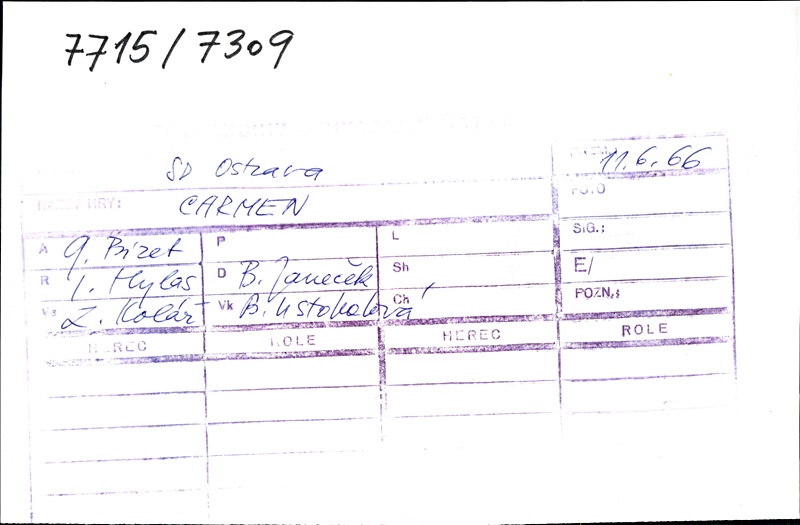 7715/7309
SD Ostrava
11.6.66
NÁZEV HRY: CARMEN
FOTO
A G. Bizet P L SIG.:
R I. Hylas D B. Janeček Sh E/
Vs Z. Kolář Vk Ch POZN.:
HEREC ROLE HEREC ROLE